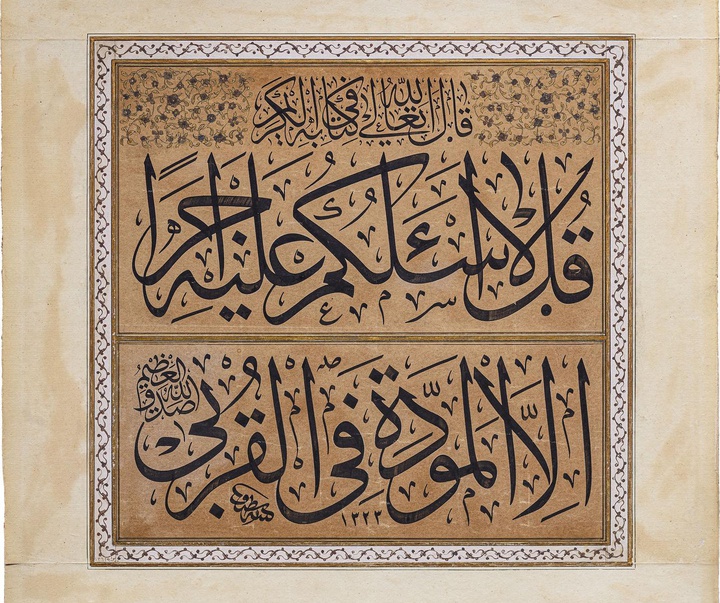 قال الله تعالى في كتابه الكريم
قُل لا اسئلكم عليه اجرًا
الا المودّة في القربى
صدق الله العظيم
١٣٢٣